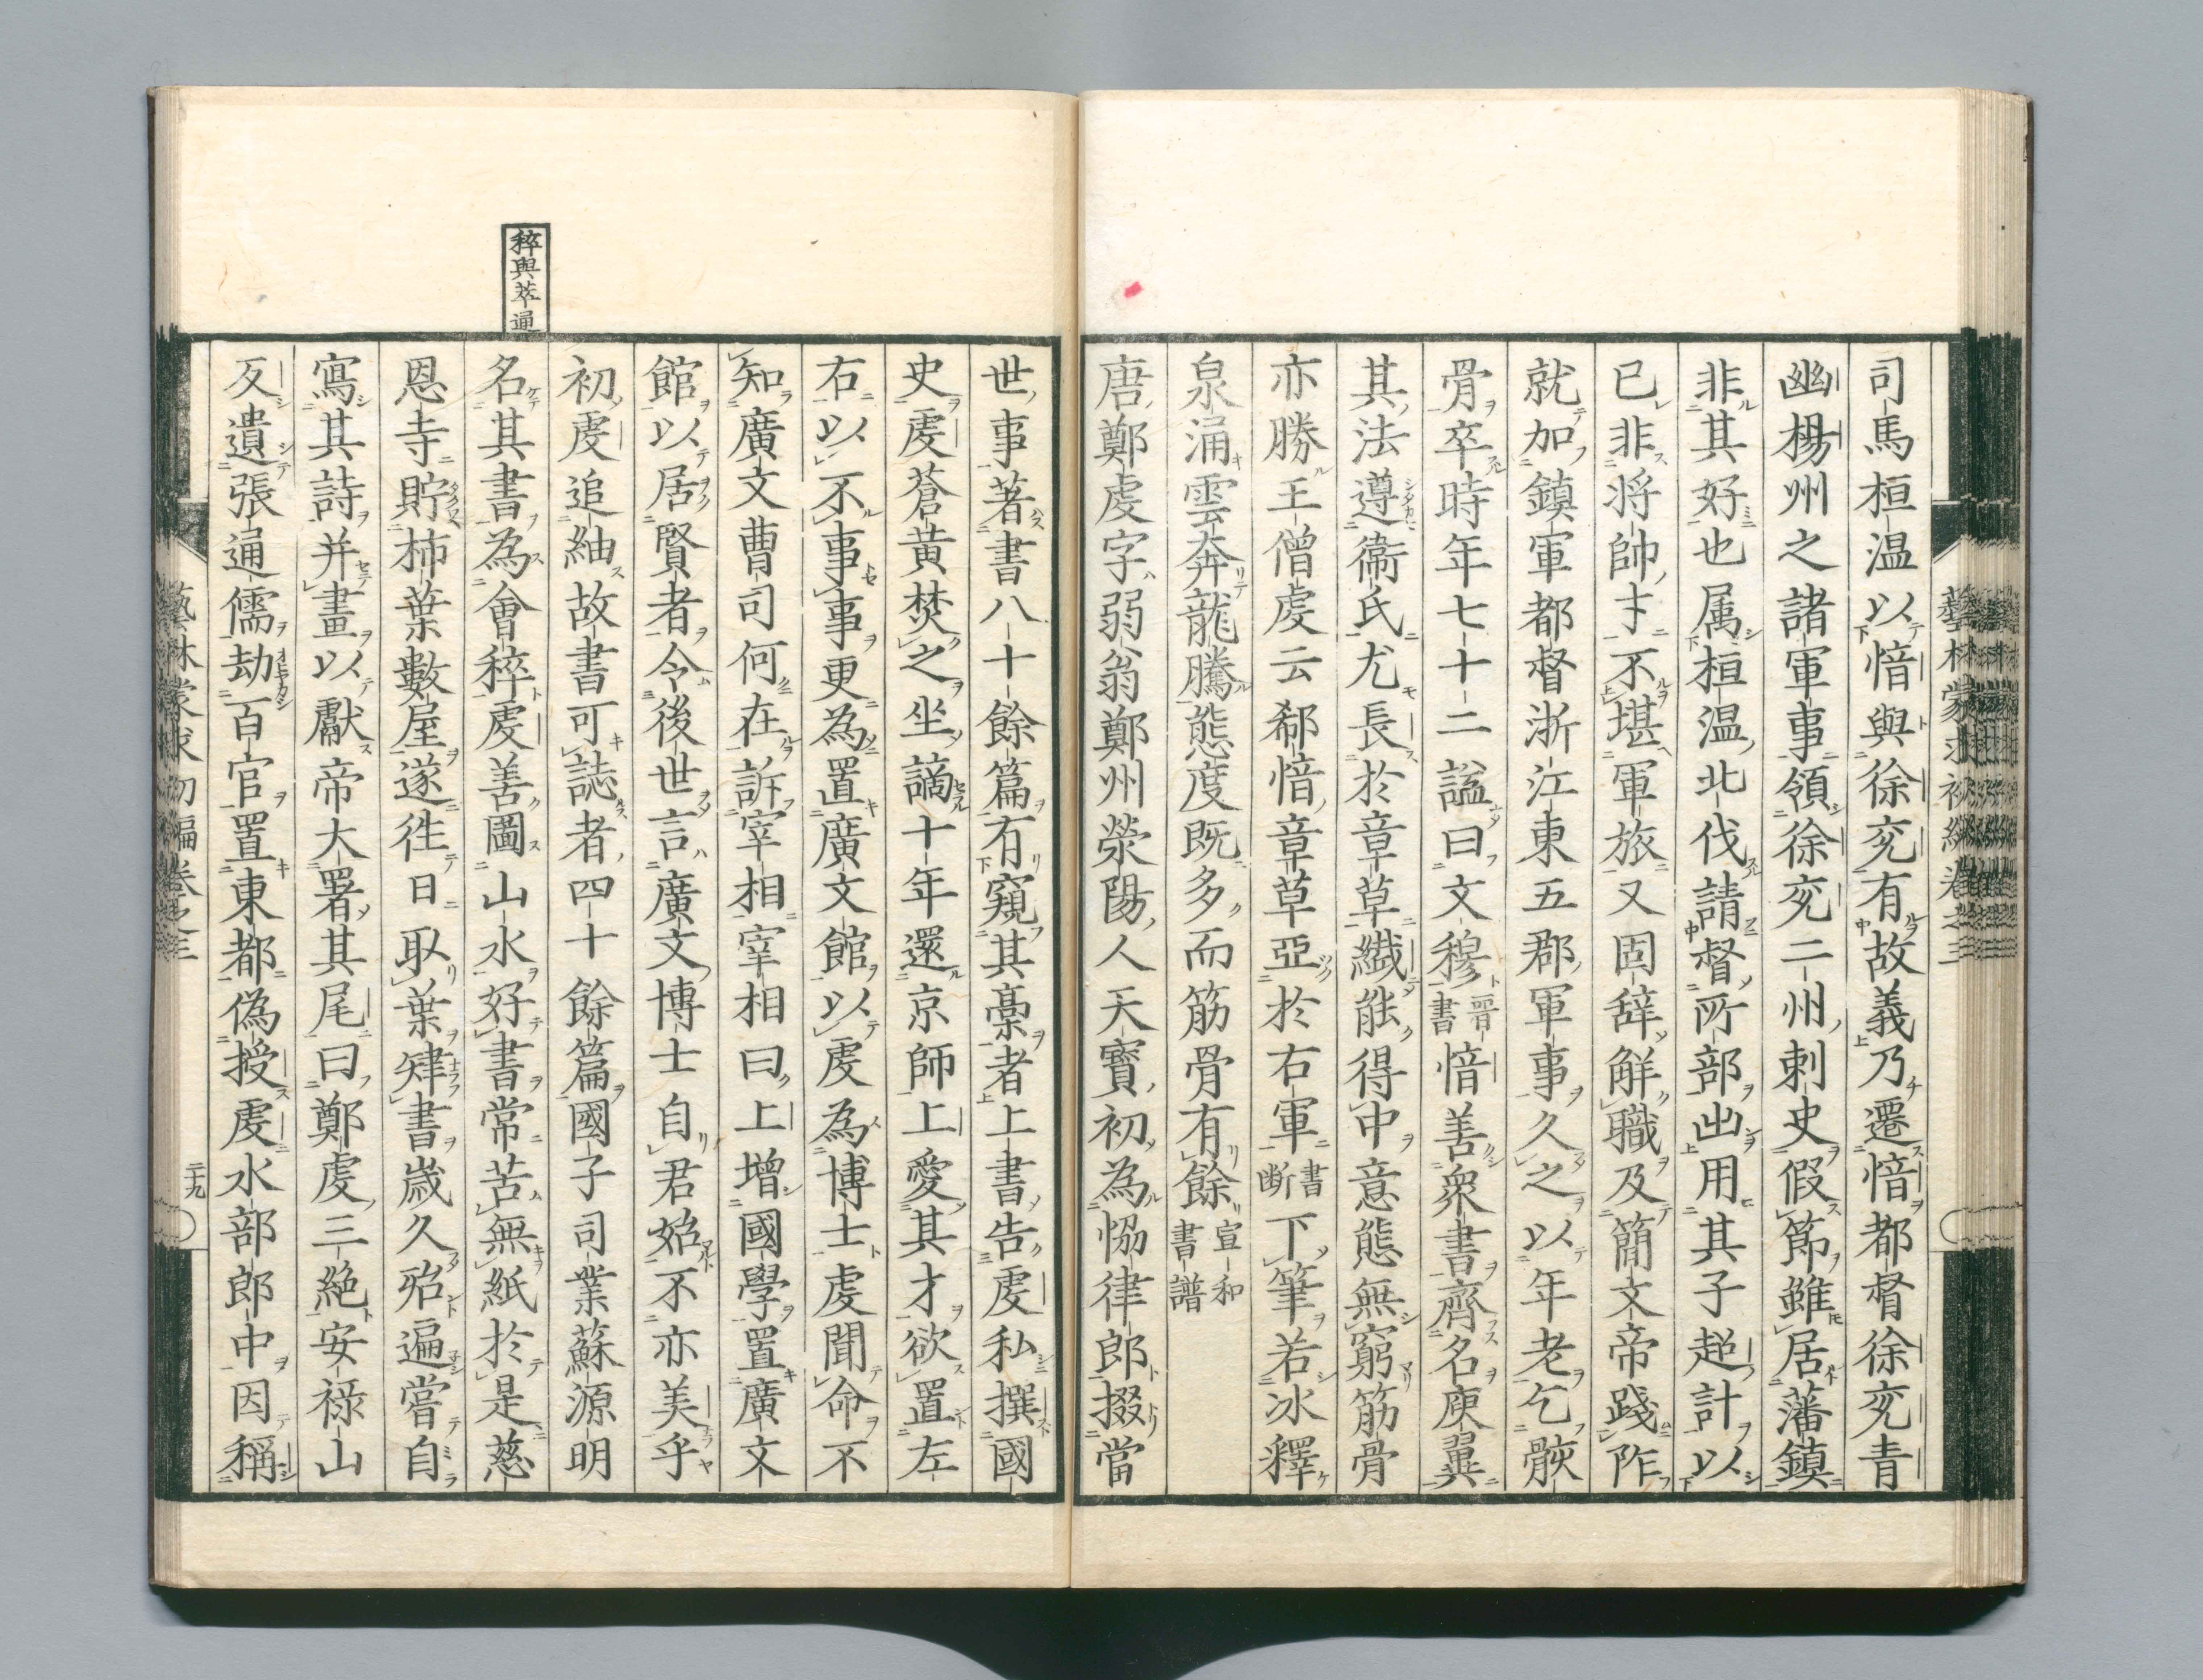 藝林蒙求初編卷之三
司馬桓温以愔與徐兗有故義乃遷愔都督徐兗青
幽楊州之諸軍事領徐兗二州刺史假節雖居藩鎮
非其好也属桓温北伐請督所部出用其子超計以
已非将帥才不堪軍旅又固辞解職及簡文帝踐阼
就加鎮軍都督浙江東五郡軍事久之以年老乞骸
骨卒時年七十二謚曰文穆晋書愔善衆書齊名庾翼
其法遵衞氏尤長於章草纎能得中意態無窮筋骨
亦勝王僧虔云郗愔章草亞於右軍書断下筆若冰釋
泉涌雲奔龍騰態度既多而筋骨有餘宣和書譜
唐鄭虔字弱翁鄭州滎陽人天寳初為恊律郎掇當
世事著書八十餘篇有窺其稾者上書告虔私撰國
史虔蒼黄焚之坐謫十年還京師上愛其才欲置左
右以不事事更為置廣文館以虔為博士虔聞命不
知廣文曹司何在訴宰相宰相曰上增國學置廣文
館以居賢者令後世言廣文博士自君始不亦美乎
初虔追紬故書可誌者四十餘篇國子司業蘇源明
稡與萃通
名其書為會稡虔善圖山水好書常苦無紙於是慈
恩寺貯柿葉數屋遂徃日取葉肄書歳久殆遍嘗自
寫其詩并畫以獻帝大署其尾曰鄭虔三絶安禄山
反遺張通儒劫百官置東都偽授虔水部郎中因稱
藝林蒙求初編卷之三 二十九